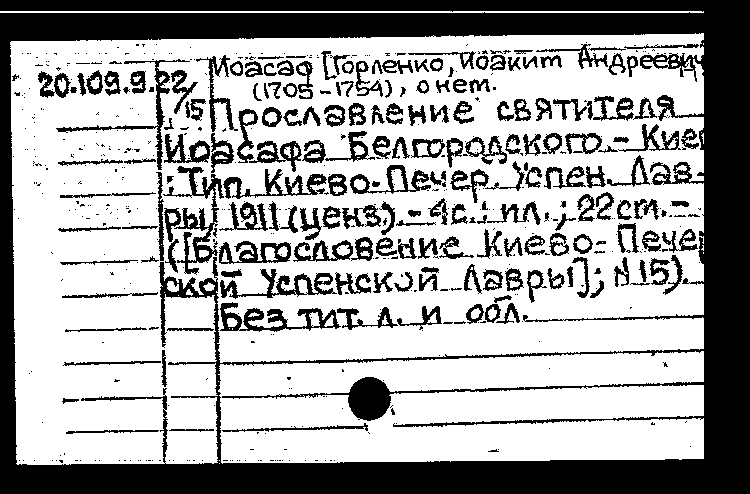 Иоасаф [Горленко, Иоаким Андреевич
20.109.9.22/15
(1705-1754), о нем.
Прославление святителя
Иоасафа Белгородского.- Киев
: Тип. Киево-Печер. Успен. Лав-
ры, 1911 (ценз.).- 4с.: ил.; 22см.-
([Благословение Киево-Печер
ской Успенской Лавры]; N 15).
Без тит. л. и обл.